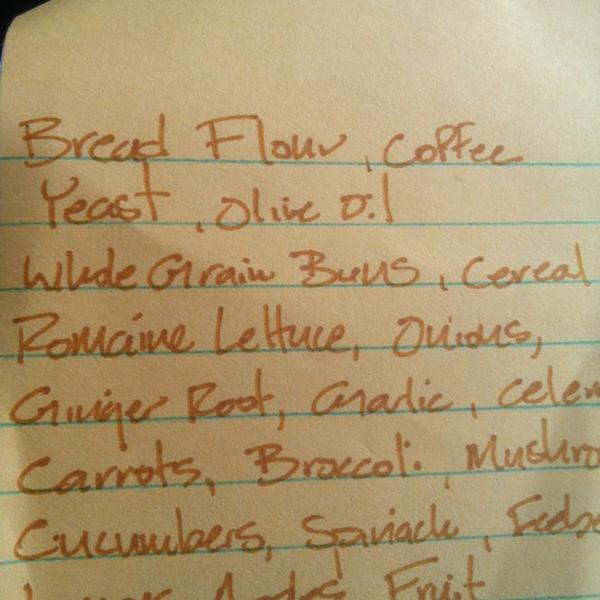 Bread Flour, Coffee
Yeast, Olive Oil
Whole Grain Buns, Cereal
Romaine Lettuce, Onions,
Ginger Root, Garlic, Celer
Carrots, Broccoli, Mushro
Cucumbers, Spinach,
Fruit